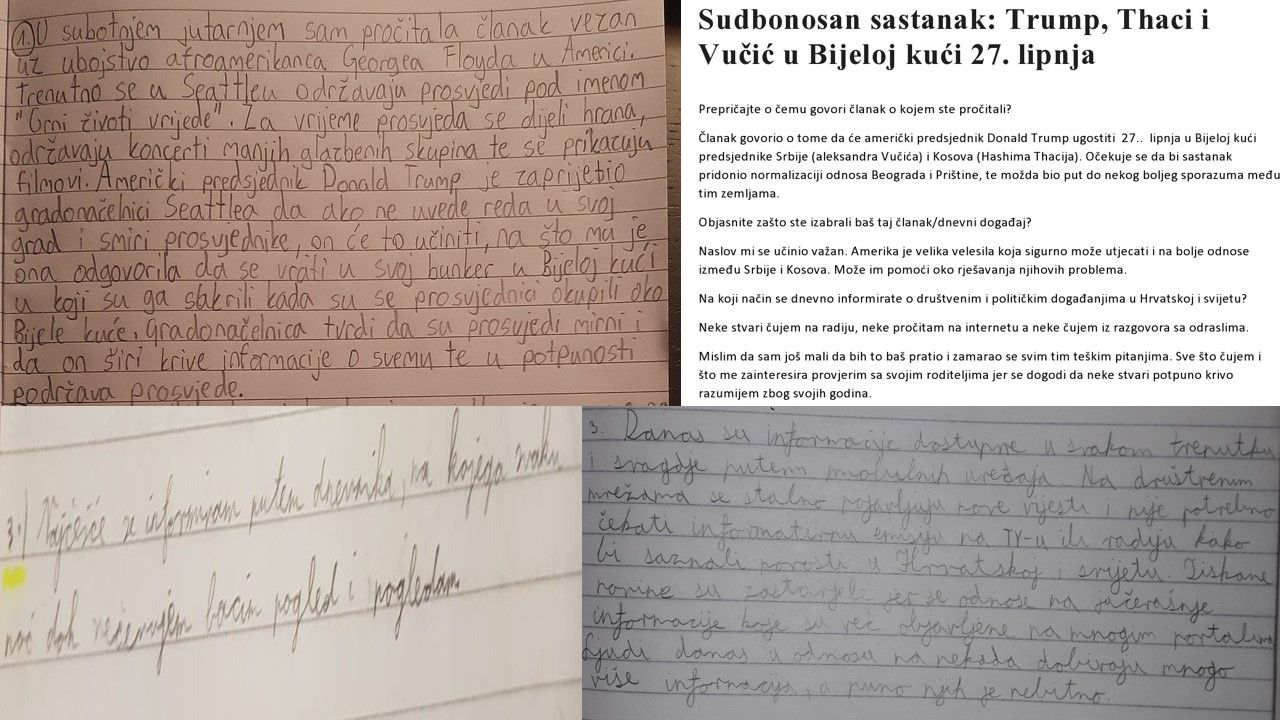 1) U subotnjem jutarnjem sam pročitala članak vezan
uz ubojstvo afroamerikanca Georgea Floyda u Americi.
Trenutno se u Seattleu održavaju prosvjedi pod imenom
"Crni životi vrijede". Za vrijeme prosvjeda se dijeli hrana,
održavaju koncerti manjih glazbenih skupina te se prikazuju
filmovi. Američki predsjednik Donald Trump je zaprijetio
gradonačelnici Seattlea da ako ne uvede reda u svoj
grad i smiri prosvjednike, on će to učiniti, na što mu je
ona odgovorila da se vrati u svoj bunker u Bijeloj kući
u koji su ga sakrili kada su se prosvjednici okupili oko
Bijele kuće. Gradonačelnica tvrdi da su prosvjedi mirni i
da on širi krive informacije o svemu te u potpunosti
podržava prosvjede.
Sudbonosan sastanak: Trump, Thaci i
Vučić u Bijeloj kući 27. lipnja
Prepričajte o čemu govori članak o kojem ste pročitali?
Članak govorio o tome da će američki predsjednik Donald Trump ugostiti 27.. lipnja u Bijeloj kući
predsjednike Srbije (aleksandra Vučića) i Kosova (Hashima Thacija). Očekuje se da bi sastanak
pridonio normalizaciji odnosa Beograda i Prištine, te možda bio put do nekog boljeg sporazuma među
tim zemljama.
Objasnite zašto ste izabrali baš taj članak/dnevni događaj?
Naslov mi se učinio važan. Amerika je velika velesila koja sigurno može utjecati i na bolje odnose
između Srbije i Kosova. Može im pomoći oko rješavanja njihovih problema.
Na koji način se dnevno informirate o društvenim i političkim događanjima u Hrvatskoj i svijetu?
Neke stvari čujem na radiju, neke pročitam na internetu a neke čujem iz razgovora sa odraslima.
Mislim da sam još mali da bih to baš pratio i zamarao se svim tim teškim pitanjima. Sve što čujem i
što me zainteresira provjerim sa svojim roditeljima jer se dogodi da neke stvari potpuno krivo
razumijem zbog svojih godina.
3.) Najčešće se informiram putem dnevnika, na kojega svaku
noć dok večeram bacim pogled i pogledam
3. Danas su informacije dostupne u svakom trenutku
i svagdje putem mobilnih uređaja. Na društvenim
mrežama se stalno pojavljuju nove vijesti i nije potrebno
čekati informativnu emisiju na TV-u ili radiju kako
bi saznali novosti u Hrvatskoj i svijetu. Tiskane
novine su zastarjele jer se odnose na jučerašnje
informacije koje su već objavljene na mnogim portalima
Ljudi danas u odnosu na nekada dobivaju mnogo
više informacija, a puno njih je nebitno.